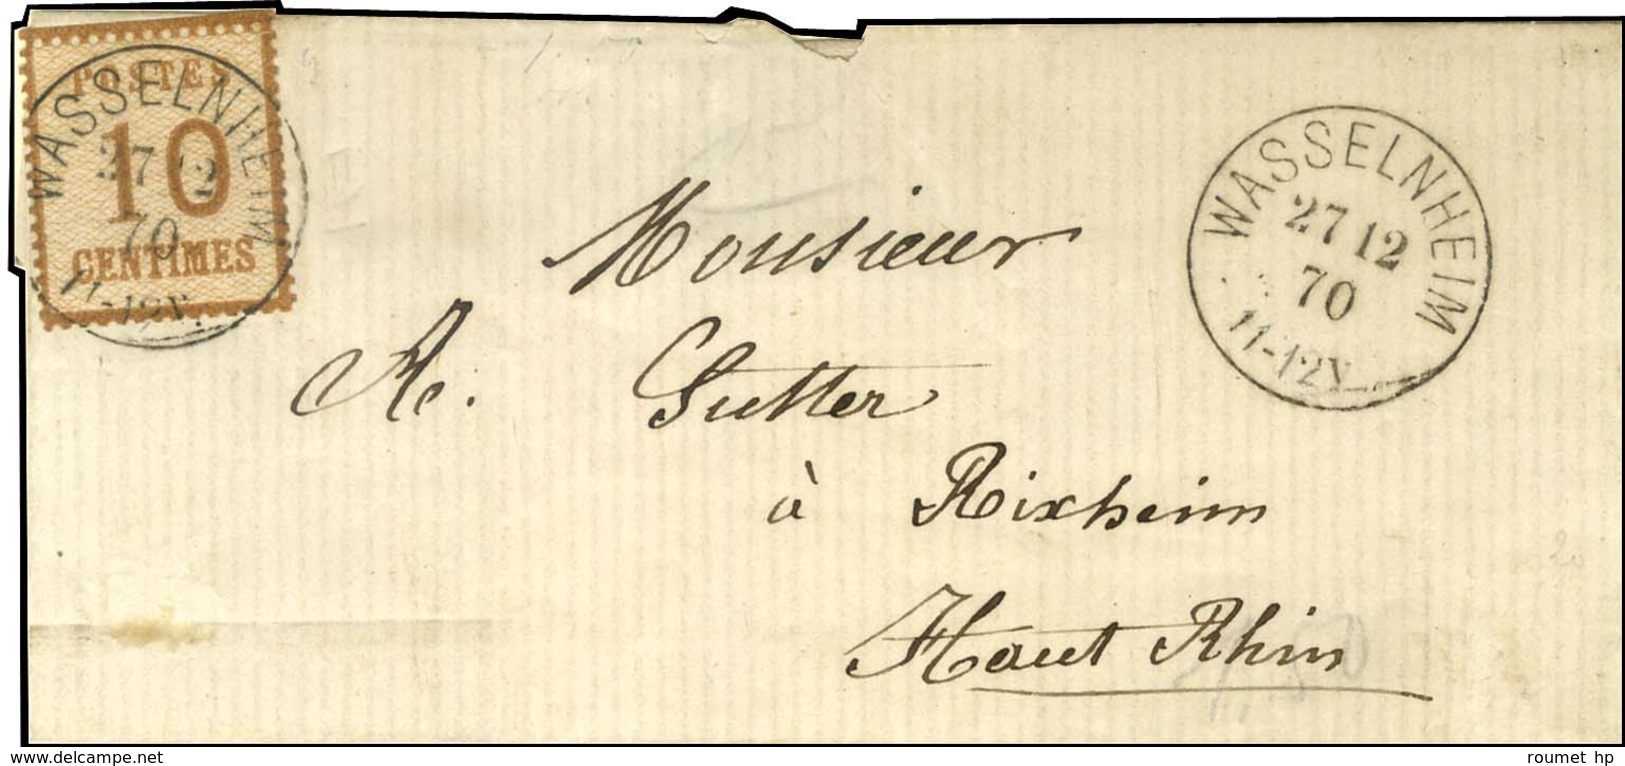 POSTES
10
CENTIMES
WASSELNHEIM
27 12
70
11-12V.
WASSELNHEIM
27 12
70
11-12V.
Monsieur
A. Sutter
à Rixheim
Haut Rhin
www.delcampe.net
roumet hp